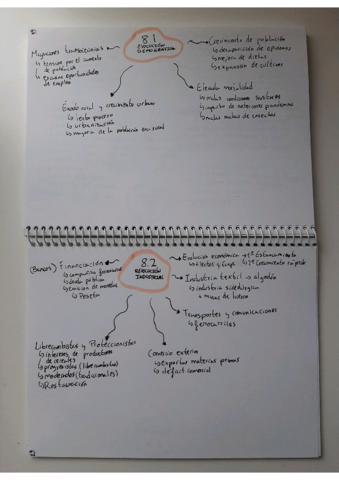 8.1
EVOLUCIÓN
DEMOGRÁFICA
Migraciones transoceánicas
↳ tensión por el aumento
de población
↳ escasas oportunidades
de empleo
Crecimiento de población
↳ desaparición de epidemias
↳ mejora de dietas
↳ expansión de cultivos
Éxodo rural y crecimiento urbano
↳ lento proceso
↳ urbanización
↳ mayoría de la población era rural
Elevada mortalidad
↳ malas condiciones sanitarias
↳ impacto de
↳ malas rachas de cosechas
8.2
REVOLUCIÓN
INDUSTRIAL
(Bancos) Financiación
↳ compañías financieras
↳ deuda pública
↳ emisión de moneda
↳ Peseta
Evolución económica → 1º Estancamiento
2º Crecimiento
Industria textil → algodón
↳ industria siderúrgica
Transportes y comunicaciones
↳ ferrocarriles
Librecambistas y Proteccionistas
↳ intereses de productores
de cereales
↳ progresistas (librecambistas)
↳ moderados (tradicionales)
↳ Restauración
Comercio exterior
↳ exportar materias primas
↳ déficit comercial